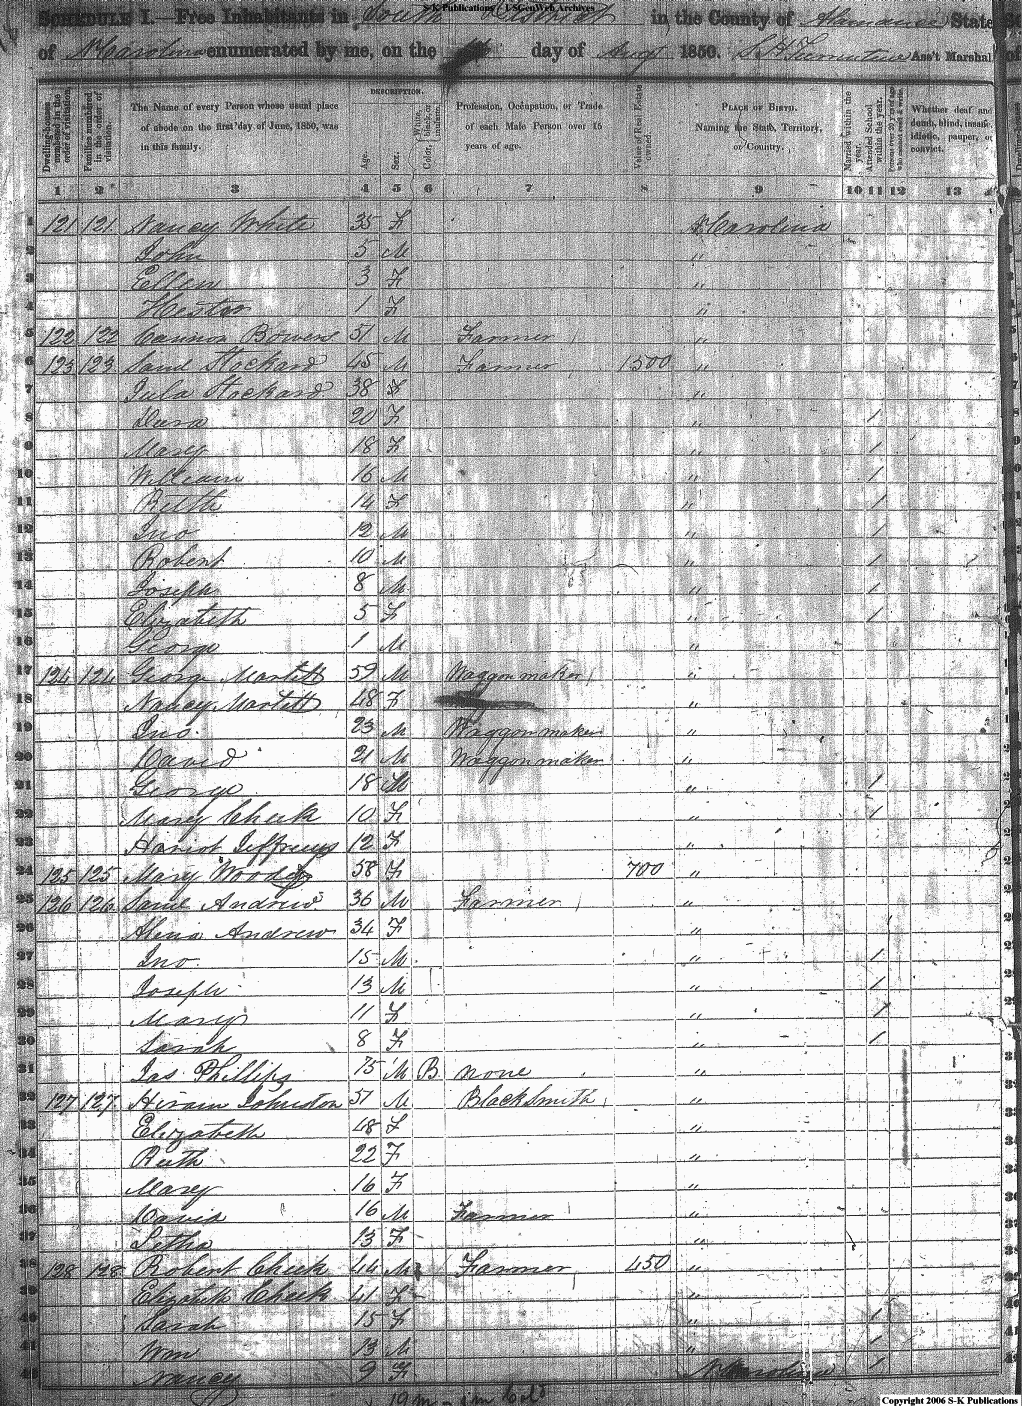 S-K Publications / USGenWeb Archives
SCHEDULE I.—Free Inhabitants in South District in the County of Alamance State
of N Carolina enumerated by me, on the day of Augt 1850. Ass't Marshal
DESCRIPTION.
Dwelling-houses numbered in the order of visitation.
Families numbered in the order of visitation.
The Name of every Person whose usual place of abode on the first day of June, 1850, was in this family.
Age.
Sex.
White, black, or mulatto.
Color,
Profession, Occupation, or Trade of each Male Person over 15 years of age.
Value of Real Estate owned.
PLACE OF BIRTH. Naming the State, Territory, or Country.
Married within the year.
Attended School within the year.
Persons over 20 y'rs of age who cannot read & write.
Whether deaf and dumb, blind, insane, idiotic, pauper, or convict.
1 2 3 4 5 6 7 8 9 10 11 12 13
1 121 121 Nancy White 35 F N Carolina
2 John 5 M "
3 Ellen 3 F "
4 Hester 1 F "
5 122 122 Bowers 51 M Farmer "
6 123 123 Saml Stockard 45 M Farmer 1500 "
7 Stockard 38 F "
8 20 F " 1
9 Mary 18 F " 1
10 William 16 M " 1
11 Ruth 14 F " 1
12 Jno 12 M " 1
13 Robert 10 M " 1
14 Joseph 8 M " 1
15 Elizabeth 5 F " 1
16 George 1 M "
17 124 124 George Martett 59 M Waggon maker "
18 Nancy Martett 48 F "
19 Jno. 23 M Waggon maker "
20 David 21 M Waggon maker "
21 George 18 M " 1
22 Mary Cheek 10 F " 1
23 Hariot Jeffreys 12 F "
24 125 125 Mary Woody 58 F 700 "
25 126 126 Saml Andrew 36 M Farmer "
26 Andrew 34 F "
27 Jno. 15 M " 1
28 Joseph 13 M " 1
29 Mary 11 F " 1
30 Sarah 8 F " 1
31 Jas Phillips 75 M B none "
32 127 127 Hiram Johnston 51 M BlackSmith "
33 Elizabeth 48 F "
34 Ruth 22 F "
35 Mary 16 F "
36 David 16 M Farmer "
37 Letha 13 F "
38 128 128 Robert Cheek 44 M Farmer 450 "
39 Elizabeth Cheek 41 F "
40 Sarah 15 F " 1
41 Wm 13 M " 1
42 Nancy 9 F N Carolina 1
19 m
Copyright 2006 S-K Publications